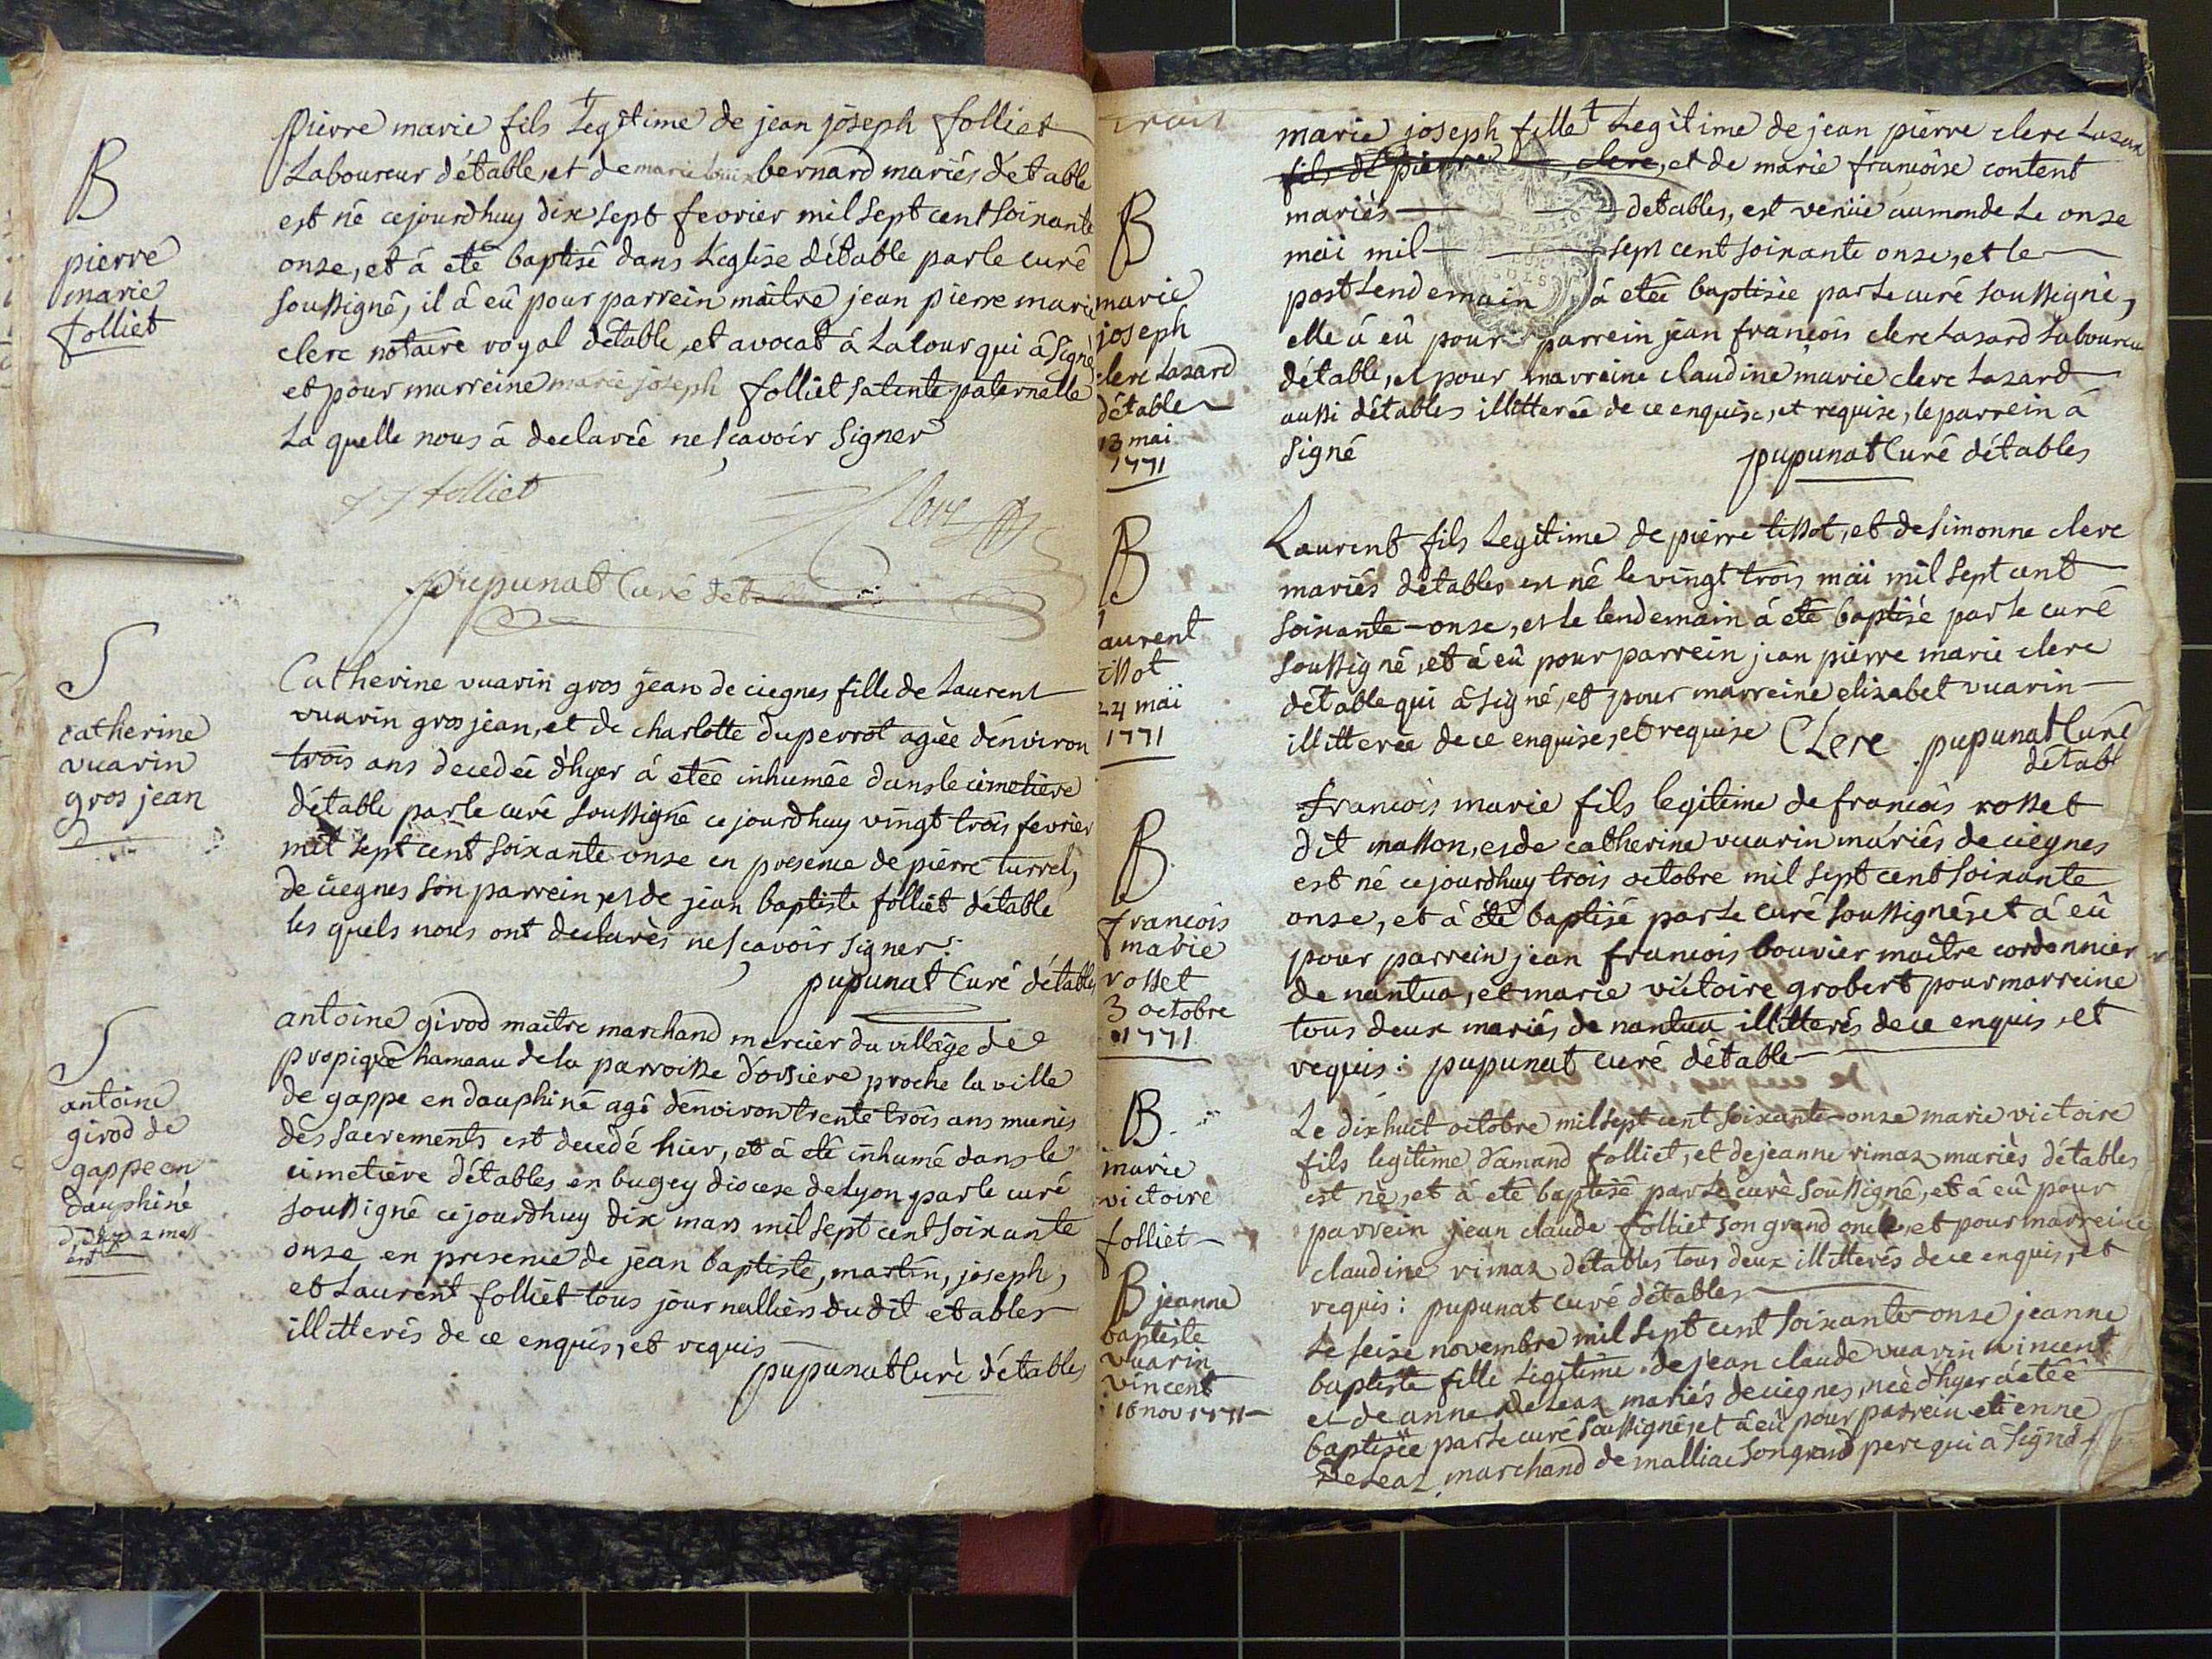 B
pierre
marie
folliet
pierre marie fils Legitime de jean joseph folliet
Laboureur détable, et de marie louix bernard mariés détable
est né cejourdhuy dix sept fevrier mil sept cent soixante
onze, et á eté baptisé dans Léglise détable par le curé
soussigné, il á eû pour parrein maitre jean pierre marie
clerc notaire royal détable, et avocat á La cour qui á signé
et pour marreine marie joseph folliet sa tente paternelle
La quelle nous á declarée ne sçavoir signer
folliet
Clerc
pupunat Curé détables
S
catherine
vuarin
gros jean
Catherine vuarin gros jean de ciegnes fille de Laurent
vuarin gros jean, et de charlotte duperrot agée dénviron
trois ans decedée d'hyer á etée inhumée dans le cimetiere
détable par le curé soussigné ce jourdhuy vingt trois fevrier
mil sept cent soixante onze en presence de pierre turrel,
de ciegnes son parrein, et de jean baptiste folliet détable
les quels nous ont declarés ne sçavoir signer.
pupunat Curé détables
S
antoine
girod de
gappe en
dauphiné
antoine girod maitre marchand mercier du village de
propiqué hameau de la parroisse d'orsiere proche la ville
de gappe en dauphiné agé dénviron trente trois ans munis
des sacrements est decedé hier, et á eté inhumé dans le
cimetiére détables en bugey diocese de Lyon par le curé
soussigné ce jourdhuy dix mars mil sept cent soixante
onze en presence de jean baptiste, martin, joseph,
et Laurent folliet tous journalliers dudit etables
illitterés de ce enquis, et requis
pupunat Curé détables
B
marie
joseph
clerc Lazard
détable
13 mai
1771
marie joseph fille Legitime de jean pierre clerc Lazard
fils de pierre clerc, et de marie francoise content
mariés détables, est venüe au monde Le onze
mai mil sept cent soixante onze, et le
postLendemain á etée baptisée par Le curé soussigné,
elle á eû pour parrein jean francois clerc Lazard Laboureur
détable, et pour marreine claudine marie clerc Lazard
aussi détables illitterée de ce enquise, et requise, le parrein á
signé
pupunat Curé détables
B
Laurent
tissot
24 mai
1771
Laurent fils Legitime de pierre tissot, et de simonne clerc
mariés détables est né le vingt trois mai mil sept cent
soixante-onze, et le lendemain á eté baptisé par le curé
soussigné, et á eû pour parrein jean pierre marie clerc
détable qui á signé, et pour marreine elizabet vuarin
illitterée de ce enquise, et requise Clerc pupunat Curé
détabl
B
francois
marie
rosset
3 octobre
1771
francois marie fils legitime de francois rosset
dit masson, et de catherine vuarin mariés de ciegnes
est né cejourdhuy trois octobre mil sept cent soixante
onze, et á eté baptisé par Le curé soussigné, et á eû
pour parrein jean francois bouvier maitre cordonnier
de nantua, et marie victoire grobert pour marreine
tous deux mariés de nantua illitterés de ce enquis, et
requis: pupunat curé détable
B
marie
victoire
folliet
Le dixhuit octobre mil sept cent soixante-onze marie victoire
fils legitime d'amand folliet, et de jeanne vimaz mariés détables
est né, et á eté baptisé par Le curé soussigné, et á eû pour
parrein jean claude folliet son grand oncle, et pour marreine
claudine vimaz détables tous deux illitterés de ce enquis, et
requis: pupunat curé détables
B jeanne
baptiste
vuarin
vincent
16 nov 1771
Le seize novembre mil sept cent soixante-onze jeanne
baptiste fille Legitime de jean claude vuarin vincent
et de anne DeLeaz mariés de ciegnes, née d'hyer á etée
baptisée par Le curé soussigné, et á eû pour parrein etienne
DeLeaz, marchand de malliac son grand pere qui á signé